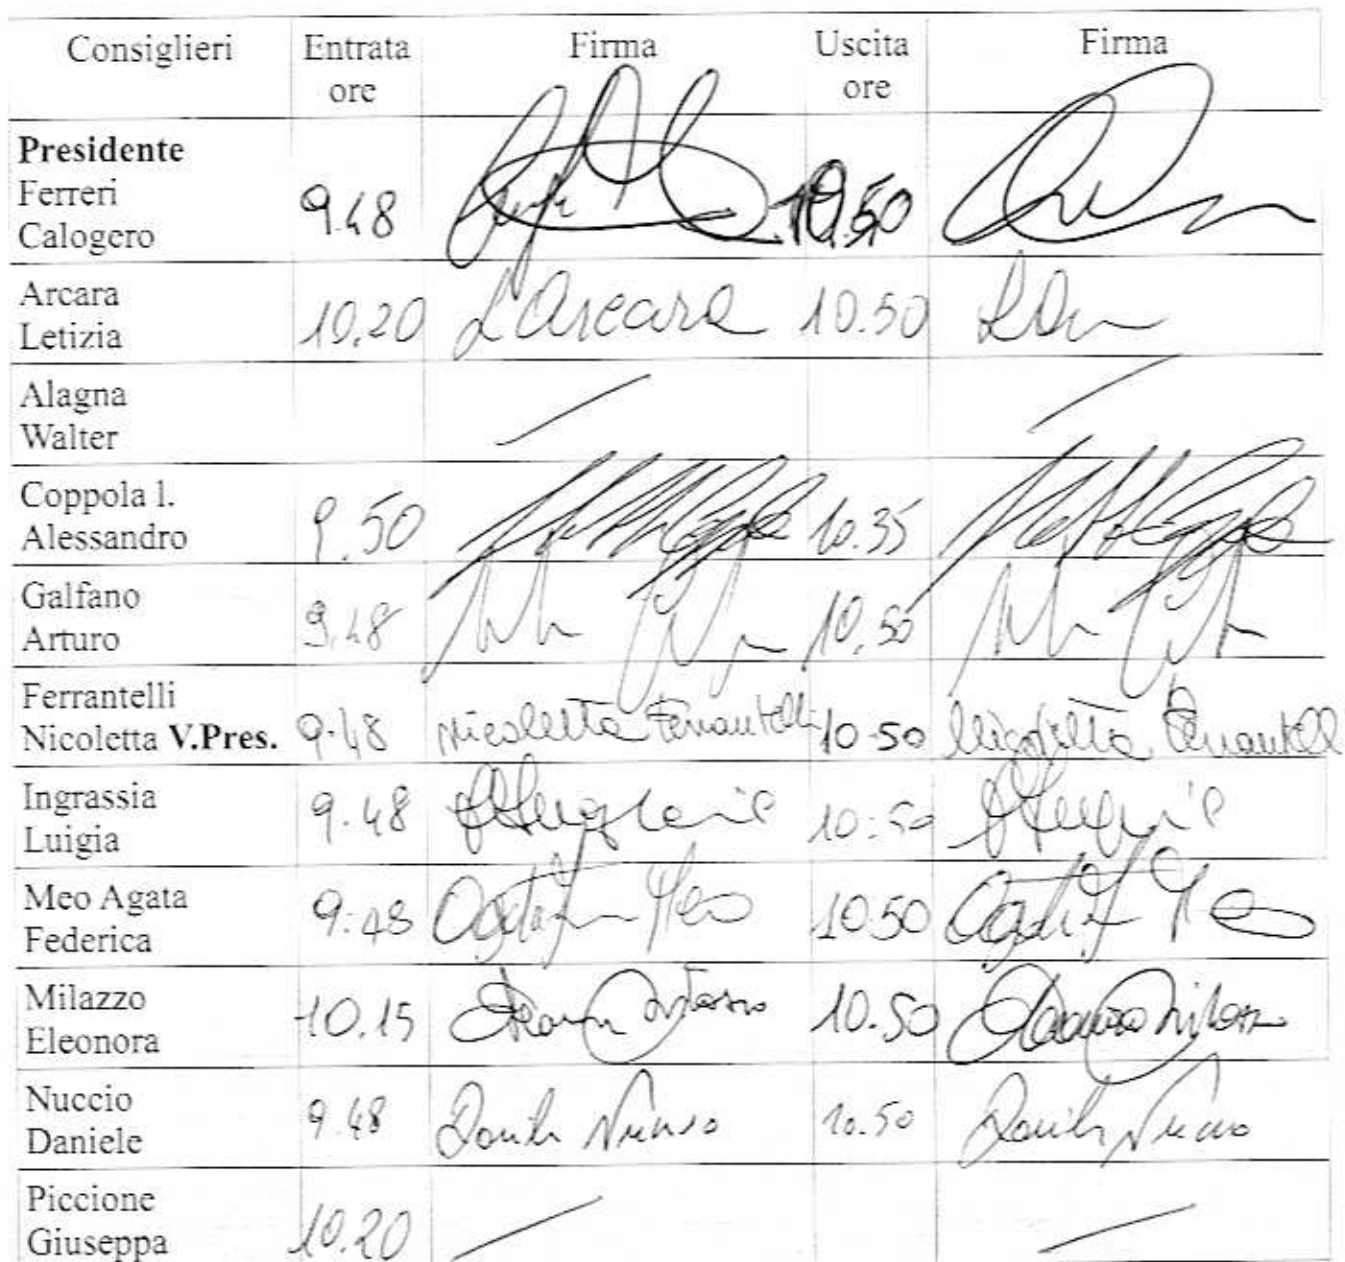 Consiglieri Entrata ore Firma Uscita ore Firma
Presidente
Ferreri
Calogero 9.48 10.50
Arcara
Letizia 10.20 L Arcara 10.50
Alagna
Walter
Coppola l.
Alessandro 9.50 10.35
Galfano
Arturo 9.48 10.50
Ferrantelli
Nicoletta V.Pres. 9.48 Nicoletta Ferrantelli 10.50 Nicoletta Ferrantelli
Ingrassia
Luigia 9.48 10:50
Meo Agata
Federica 9:48 Agata Meo 10.50
Milazzo
Eleonora 10.15 10.50
Nuccio
Daniele 9.48 10.50
Piccione
Giuseppa 10.20